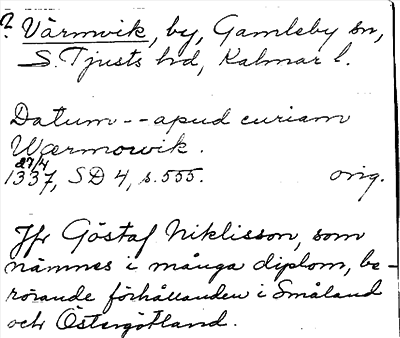 ? Värmvik, by, Gamleby sn,
S. Tjusts hd, Kalmar l.
Datum -- apud curiam
Wærmowik.
27/4
1337, SD 4, s. 555. orig.
Jfr Göstaf Niklisson, som
nämnes i många diplom, be-
rörande förhållanden i Småland
och Östergötland.